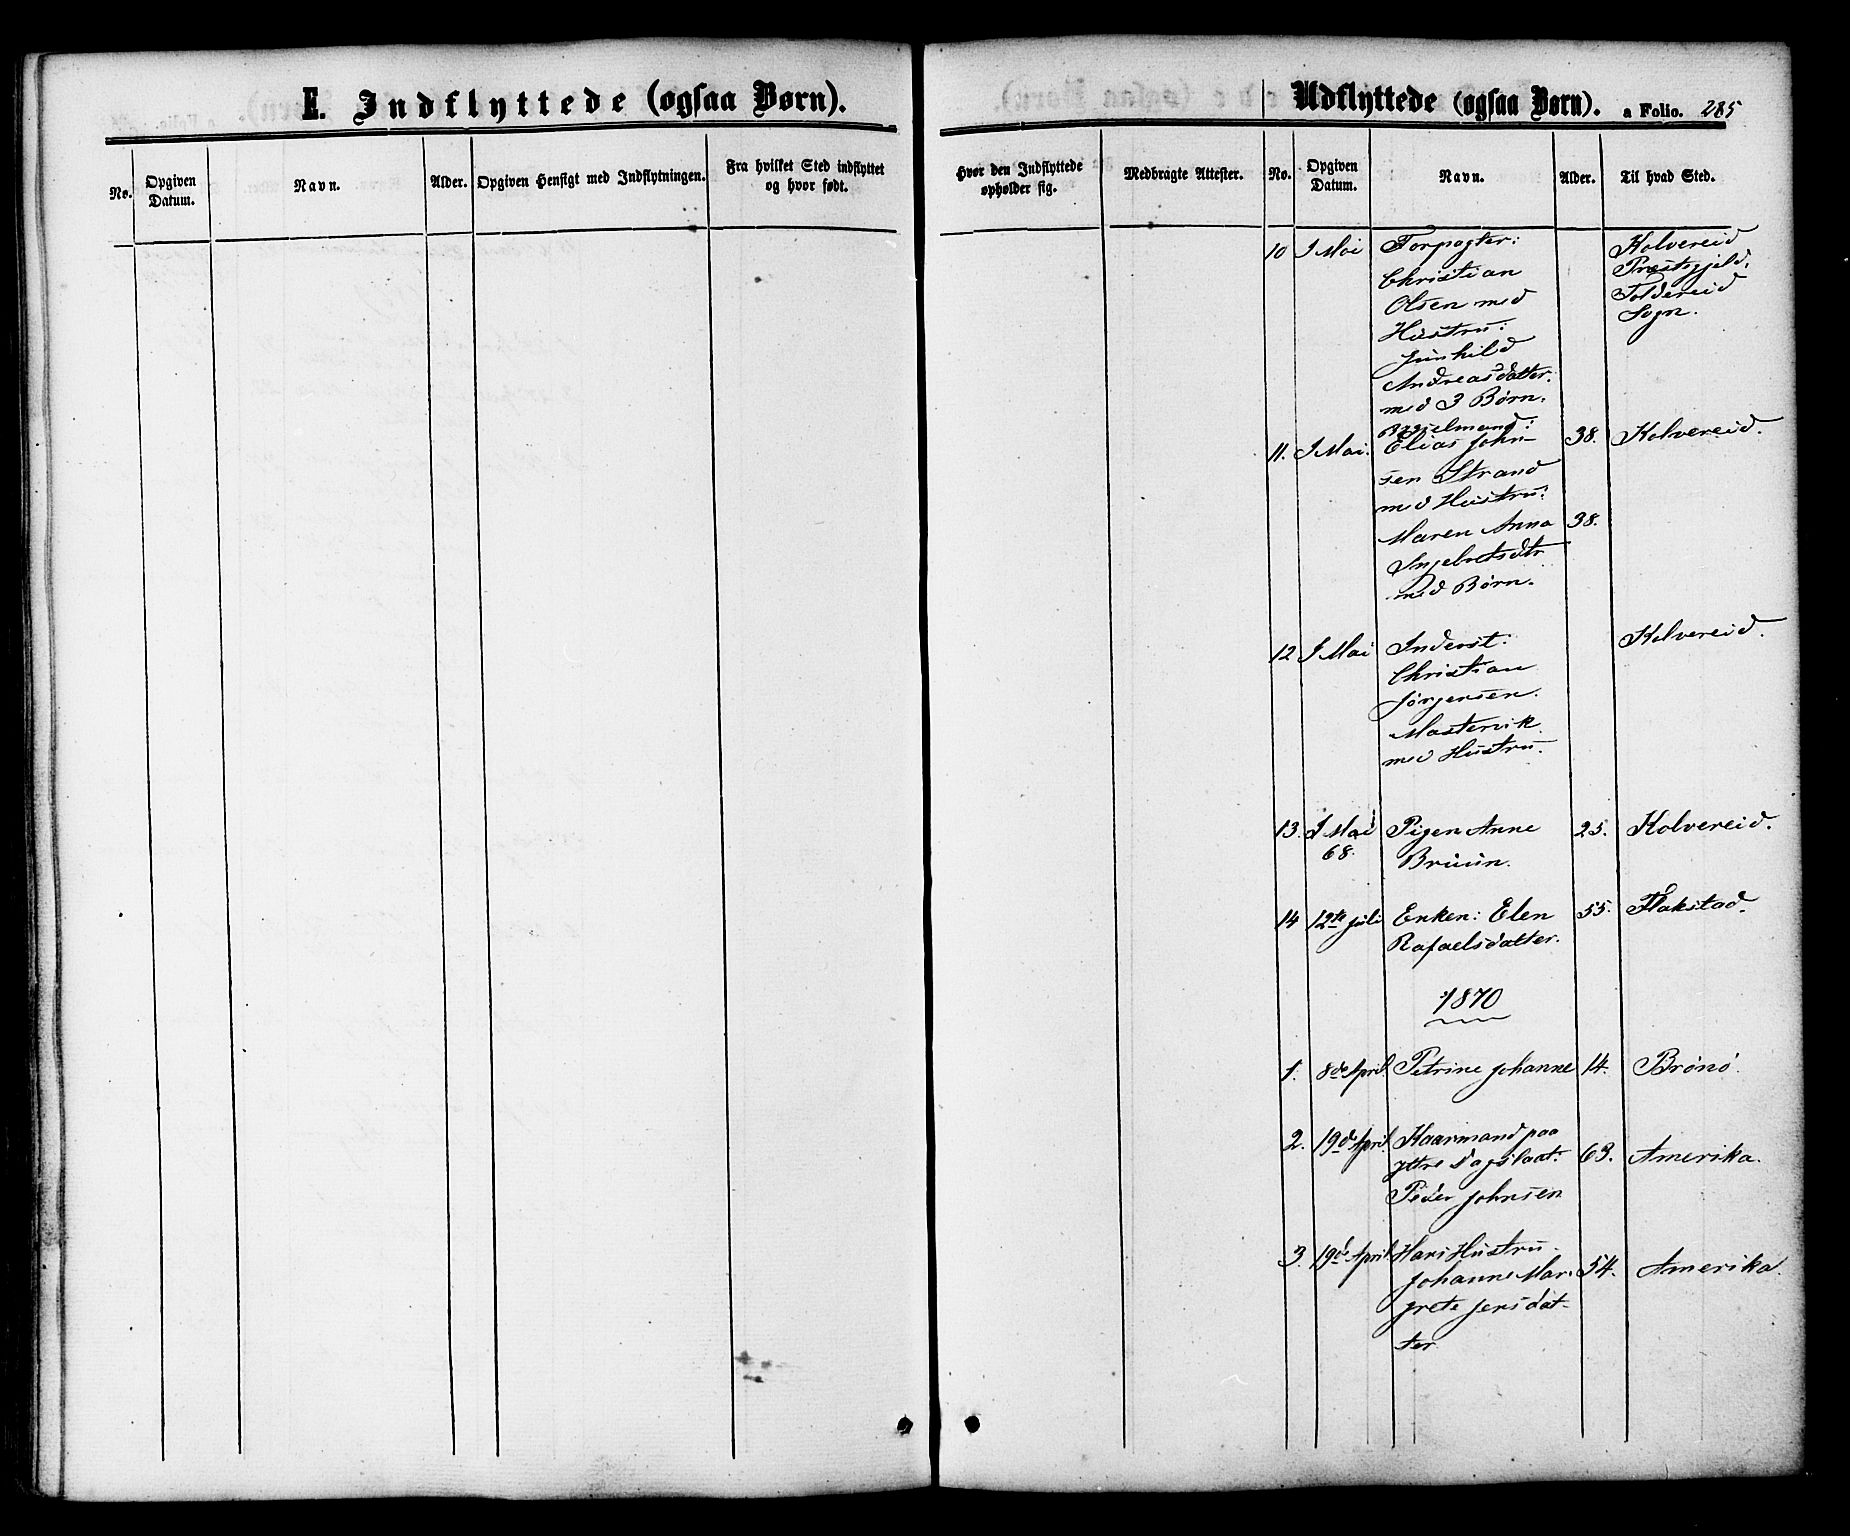 E. Indflyttede (ogsaa Børn).
No.
Opgiven Datum.
Navn.
Alder.
Opgiven Hensigt med Indflytningen.
Fra hvilket Sted indflyttet
og hvor født.
Hvor den Indflyttede
opholder sig.
Medbragte Attester.
Udflyttede (ogsaa Børn). a Folio. 285
No.
Opgiven Datum.
Navn.
Alder.
Til hvad Sted.
10 J Mai Forpagter: Kolvereid
Christian Præstegjeld,
Olsen med Foldereid
Hustru: Sogn.
Gunhild
Andreasdatter
med 3 Børn.
Bygselmand:
11. J Mai. Elias John- 38. Kolvereid.
sen Strand
med Hustru:
Maren Anna 38.
Ingebretsdtr
med Børn.
12 J Mai Inderst: Kolvereid.
Christian
Jørgensen.
Mastervik
med Hustru.
13. J Mai Pigen Anne 25. Kolvereid.
68. Bruun.
14 12te Juli Enken: Elen 55. Flakstad.
Rafaelsdatter.
1870
1. 8de April Petrine Johanne 14. Brønø.
2. 19de April Kaarmand paa
yttre Dagslaat: 63. Amerika.
Peder Johnsen
3. 19de April Hans Hustru.
Johanne Mar- 54. Amerika.
grete Jensdat-
ter